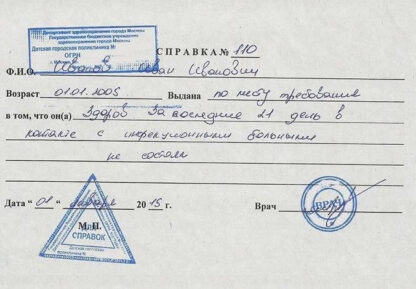 Департамент здравоохранения города Москвы
Государственное бюджетное учреждение
здравоохранения города Москвы
Детская городская поликлиника №
ОГРН
СПРАВКА № 110
Ф.И.О. Иванов Иван Иванович
Возраст 01.01.2005 Выдана по месту требования
в том, что он(а) Здоров За последние 21 день в
контакте с инфекционными больными
не состоял
Дата " 01 " января 2015 г. Врач
ВРАЧ
М.П.
ДЛЯ
СПРАВОК